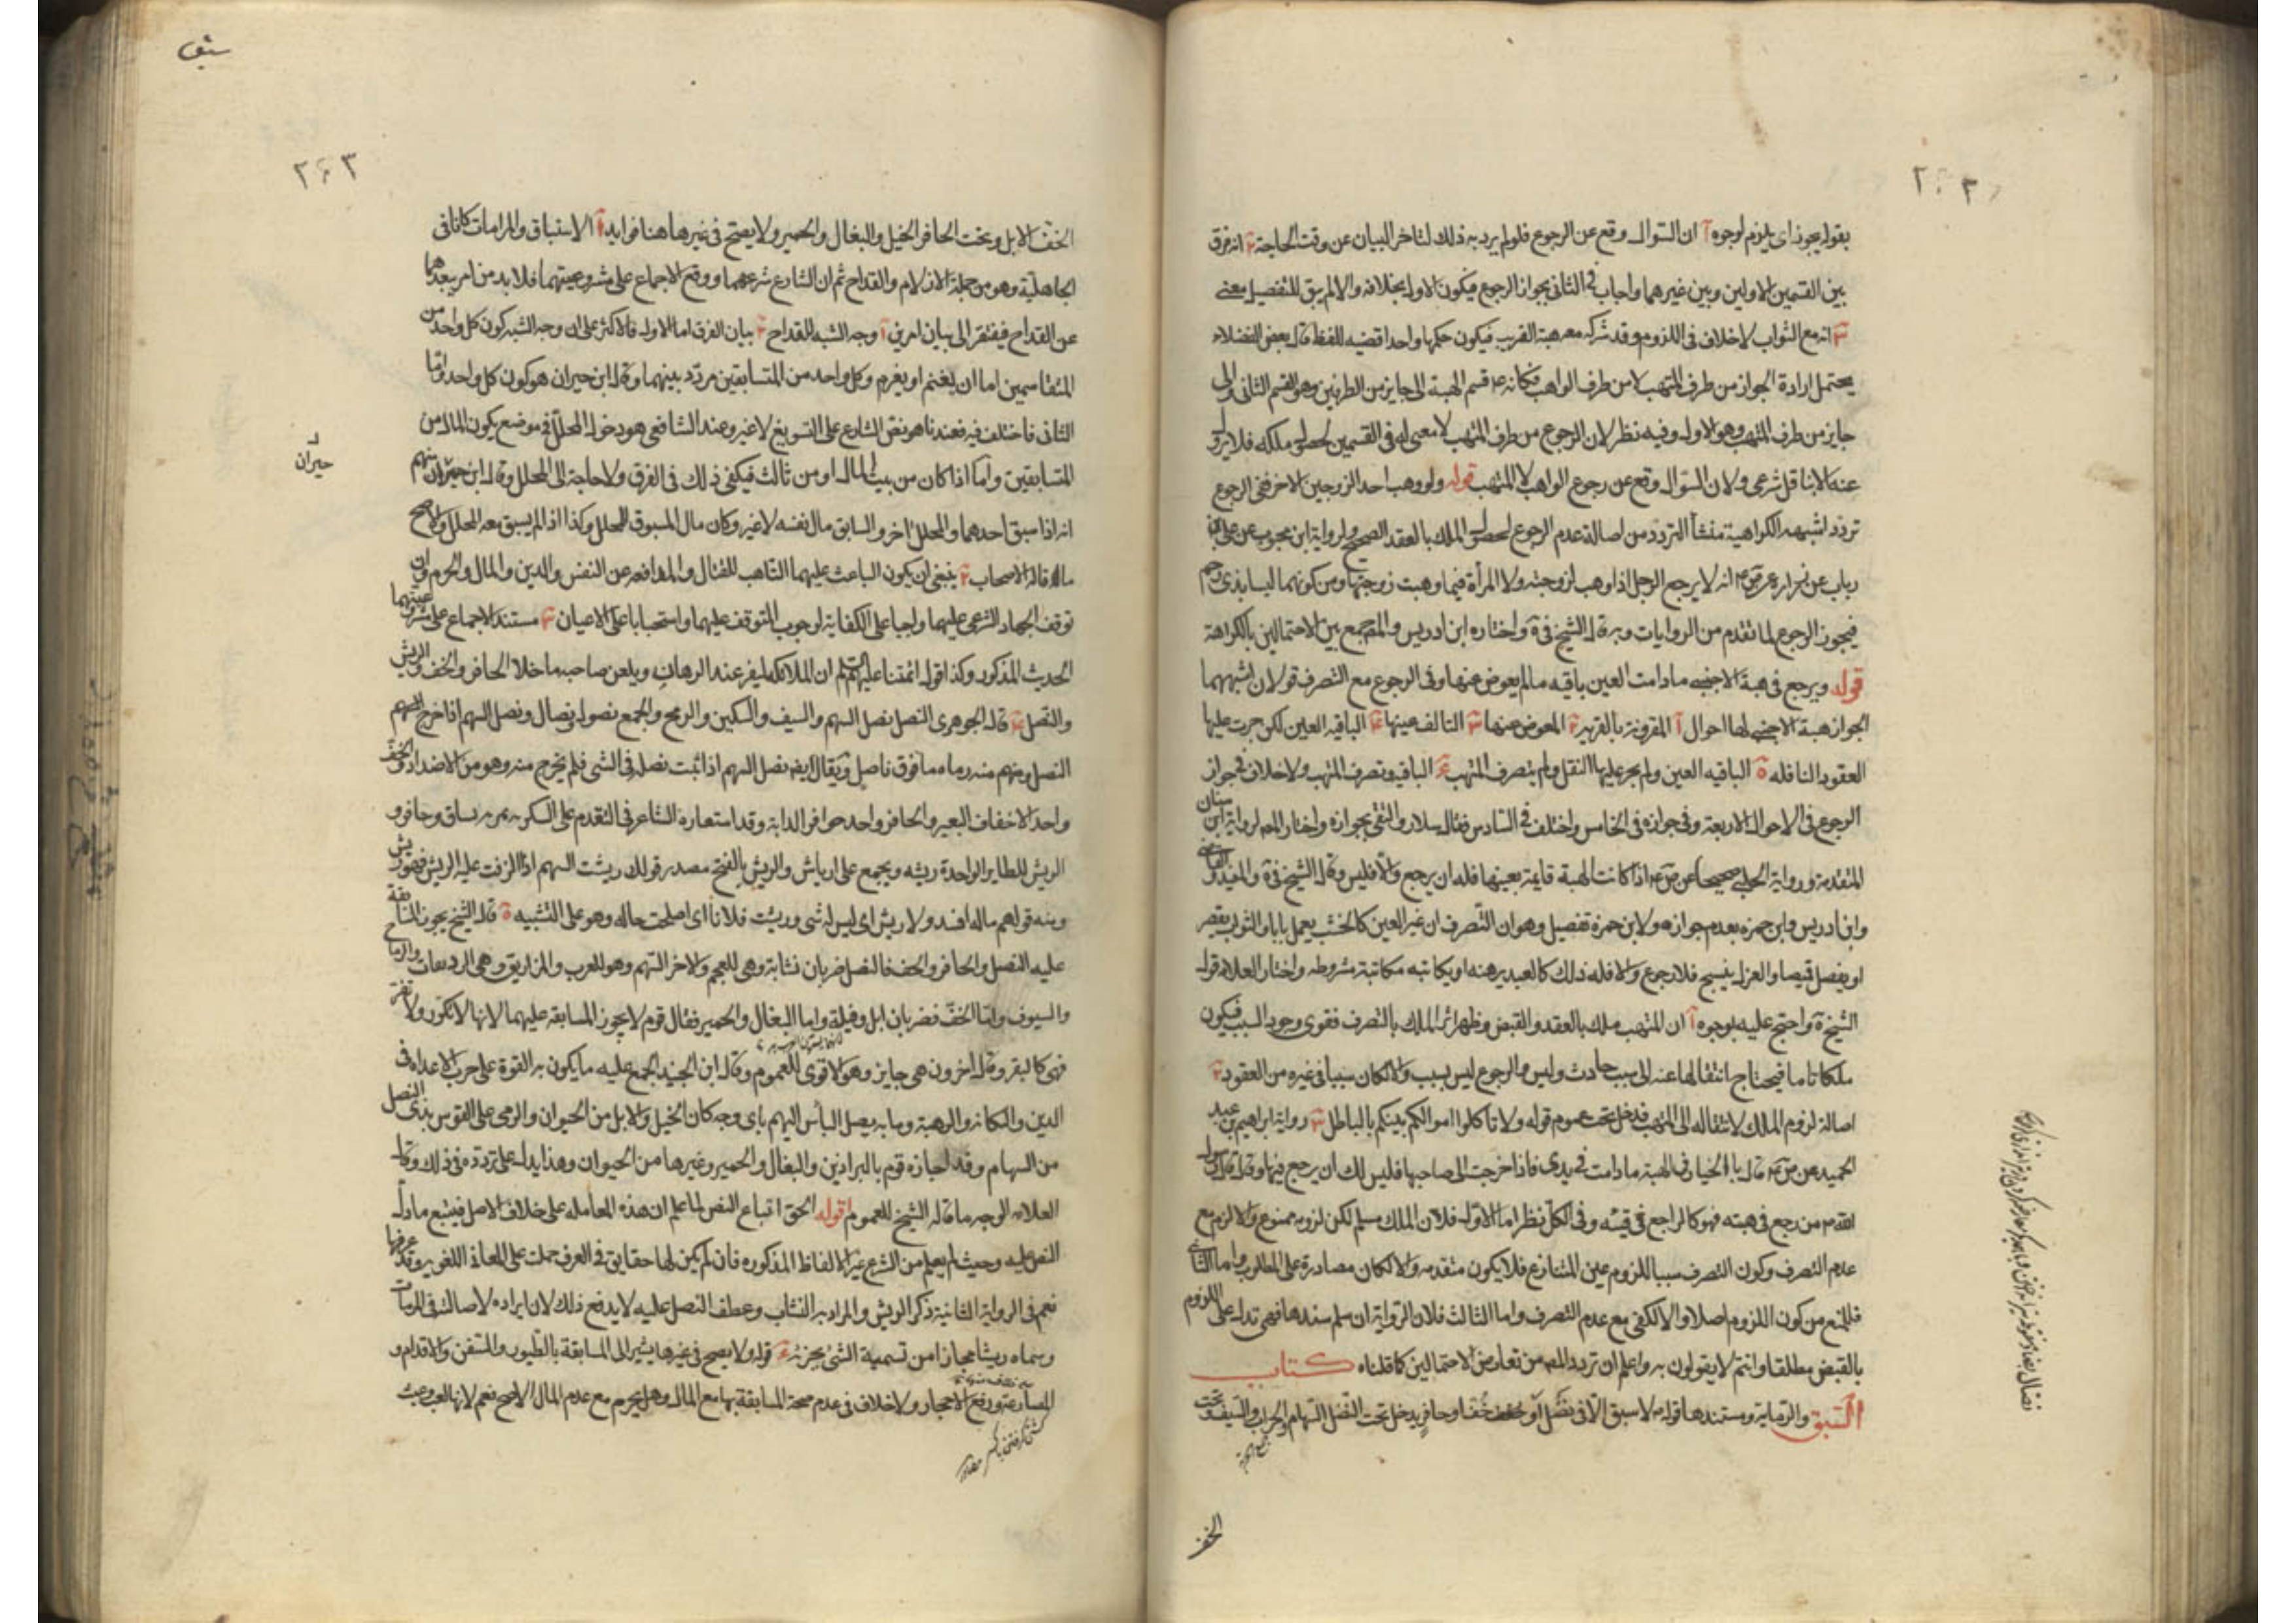 بقوله يجوز اى يلزم لوجوه آ ان السؤال وقع عن الرجوع فلو لم يرد به ذلك لتاخر البيان عن وقت الحاجة ب انه فرق
بين القسمين الاولين وبين غيرهما واجاب فى الثانى بجواز الرجوع فيكون الاول بخلافه والا لم يبق للتفصيل معنى
ج انه مع الثواب لا خلاف فى اللزوم وقد شركه معه هبة القريب فيكون حكمها واحدا قضيه للفظ قال بعض الفضلاء
يحتمل ارادة الجواز من طرف المتهب لا من طرف الواهب فكانه ع قسم الهبة الى جايز من الطرفين وهو القسم الثانى والى
جايز من طرف المتهب وهو الاول وفيه نظر لان الرجوع من طرف المتهب لا معنى له فى القسمين لحصول ملكه فلا يزول
عنه الا بناقل شرعى ولان السؤال وقع عن رجوع الواهب لا المتهب قوله ولو وهب احد الزوجين الاخر ففى الرجوع
تردد اشبهه الكراهية منشأ التردد من اصالة عدم الرجوع لحصول الملك بالعقد الصحيح ولرواية ابن محبوب عن على بن
رياب عن زراره عن ص ع انه لا يرجع الرجل اذا وهب لزوجته ولا المرأة فيما وهبت زوجها ومن كونهما ليسا بذى رحم
فيجوز الرجوع لما تقدم من الروايات وبه قال الشيخ فى ف واختاره ابن ادريس والمصه جمع بين الاحتمالين بالكراهة
قوله ويرجع فى هبة الاجنبى مادامت العين باقيه ما لم يعوض عنها وفى الرجوع مع التصرف قولان اشبههما
الجواز هبة الاجنبى لها احوال آ المقرونة بالقربة ب المعوض عنها ج التالف عينها د الباقيه العين لكن جرت عليها
العقود الناقله ه الباقيه العين ولم يجر عليها النقل ولم يتصرف المتهب و الباقيه وتصرف المتهب ولا خلاف فى جواز
الرجوع فى الاحوال الاربعة وفى جوازه فى الخامس واختلف فى السادس فقال سلار والتقى بجوازه واختار المصه لرواية ابن سنان
المتقدمة ورواية الحلبى صحيحا عن ص ع اذا كانت الهبة قايمة بعينها فله ان يرجع والا فليس وقال الشيخ فى ف والمفيد والقاضى
وابن ادريس وابن حمزه بعدم جوازه ولابن حمزة تفصيل وهو ان التصرف ان غير العين كالخشب يعمل بابا والثوب يقصر
او يفصل قميصا والغزل ينسج فلا رجوع والا فله ذلك كالعبد يرهنه او يكاتبه مكاتبة مشروطه واختار العلامه قول
الشيخ ف واحتج عليه بوجوه آ ان المتهب ملك بالعقد والقبض وظهر اثر الملك بالتصرف فقوى وجود السبب فيكون
ملكا تاما فيحتاج انتقالها عنه الى سبب حادث وليس والرجوع ليس بسبب والا لكان سببا فى غيره من العقود ب
اصالة لزوم الملك لانتقاله الى المتهب فدخل تحت عموم قوله ولا تاكلوا اموالكم بينكم بالباطل ج رواية ابراهيم بن عبد
الحميد عن ص ع قال يا الخيار فى الهبة مادامت فى يدى فاذا خرجت الى صاحبها فليس لك ان يرجع فيها وقال قال رسول
الله ص من رجع فى هبته فهو كالراجع فى قيئه وفى الكل نظر اما الاول فلان الملك مسلم لكن لزومه ممنوع والا لزم مع
عدم التصرف وكون التصرف سببا للزوم عين المتنازع فلا يكون متقدمه والا لكان مصادرة على المطلوب واما الثانى
فللمنع من كون اللزوم اصلا والا لكفى مع عدم التصرف واما الثالث فلان الرواية ان سلم سندها فهى تدل على اللزوم
بالقبض مطلقا وانتم لا يقولون به واعلم ان تردد المصه من تعارض الاحتمالين كما قلناه كتاب
السبق والرماية ومستندهما قوله ص لا سبق الا فى نصل او خف او حافر يدخل تحت النصل السهام والحراب والسيف وتحت
الخف
سبق
٢٠٣
الخف الابل وتحت الحافر الخيل والبغال والحمير ولا يصح فى غيرها هنا فوايد آ الاستباق والمرامات كانا فى
الجاهلية وهو من جملة الازلام والقداح ثم ان الشارع شرعهما ووقع الاجماع على مشروعيتهما فلا بد من امر يبعدهما
عن القداح فيفتقر الى بيان امرين آ وجه الشبه للقداح ب بيان الفرق اما الاول فالاكثر على ان وجه الشبه كون كل واحد من
المتقاسمين اما ان يغنم او يغرم وكل واحد من المتسابقين مردد بينهما وقال ابن حيران هو كون كل واحد واما
الثانى فاختلف فيه فعندنا هو نص الشارع على التسويغ لا غير وعند الشافعى هو دخول المحلل فى موضع يكون المال من
المتسابقين واما اذا كان من بيت المال او من ثالث فيكفى ذلك فى الفرق ولا حاجة الى المحلل وقال ابن حيران منهم
حيران
انه اذا سبق احدهما والمحلل اخر والسابق مال نفسه لا غير وكان مال المسبوق للمحلل وكذا اذا لم يسبق معه المحلل والاصح
ما قاله الاصحاب ب ينبغى ان يكون الباعث عليهما التاهب للقتال والمدافعه عن النفس والدين والمال والحرم وان
توقف الجهاد الشرعى عليهما وجبا على الكفاية لوجوب المتوقف عليهما واستحبابا على الاعيان ج مستند الاجماع على مشروعيتهما
الحديث المذكور وكذا قول ائمتنا عليهم السلم ان الملائكه ليفر عند الرهان ويلعن صاحبه ما خلا الحافر والخف والريش
والنصل د قال الجوهرى النصل نصل السهم والسيف والسكين والرمح والجمع نصول ونصال ونصل السهم اذا خرج السهم
النصل ومنهم منه رماه مافوق ناصل ويقال ايضه نصل السهم اذا ثبت نصله فى الشى فلم يخرج منه وهو من الاضداد والخف
واحد الاخفاف البعير والحافر واحد حوافر الدابة وقد استعاره الشاعر فى التقدم على السكر به يمر به بساق وحافر و
الريش للطاير الواحدة ريشه ويجمع على ارياش والريش بالفتح مصدر قولك ريشت السهم اذا الزقت عليه الريش فهو مريش
ومنه قولهم ماله اقد ولا ريش اى ليس له شى وريشت فلانا اى اصلحت حاله وهو على التشبيه ه قال الشيخ يجوز المسابقة
عليه النصل والحافر والخف فالنصل ضربان نشابة وهى للعجم والاخر السهم وهو للعرب والمزاريق وهى الردينيات والرماح
والسيوف واما الخف فضربان ابل وفيلة واما البغال والحمير فقال قوم لا يجوز المسابقه عليهما لانها لا تكر ولا تفر
فهى كالبقر وقال اخرون هى جايز وهو الاقوى للعموم وقال ابن الجنيد الجمع عليه ما يكون به القوة على حرب الاعداء فى
الدين والنكاية والرهبة وما به يصل الباس اليهم باى وجه كان الخيل والابل من الحيوان والرمى على القوس بذى النصل
من السهام وقد اجازه قوم بالبراذين والبغال والحمير وغيرها من الحيوان وهذا يدل على تردده فى ذلك وقال
العلامه الوجه ما قاله الشيخ للعموم قوله الحق اتباع النص لما علم ان هذه المعامله على خلاف الاصل فيتبع ما دل
النص عليه وحيث لم يعلم من الشرع غير الالفاظ المذكوره فان لم يكن لها حقايق فى العرف حملت على المعانى اللغويه وقد عرفتها
نعم فى الرواية الثانية ذكر الريش والمراد به النشاب وعطف النصل عليه لا يدفع ذلك لان ايراده لاصالته فى المرميات
وسماه ريشا مجازا من تسمية الشى بجزئه و قوله ولا يصح فى غيرها يشير الى المسابقة بالطيور والسفن والاقدام و
المصارعة ورفع الاحجار ولا خلاف فى عدم صحة المسابقة بها مع المال وهل يحرم مع عدم المال الاصح نعم لانها لعب وعبث